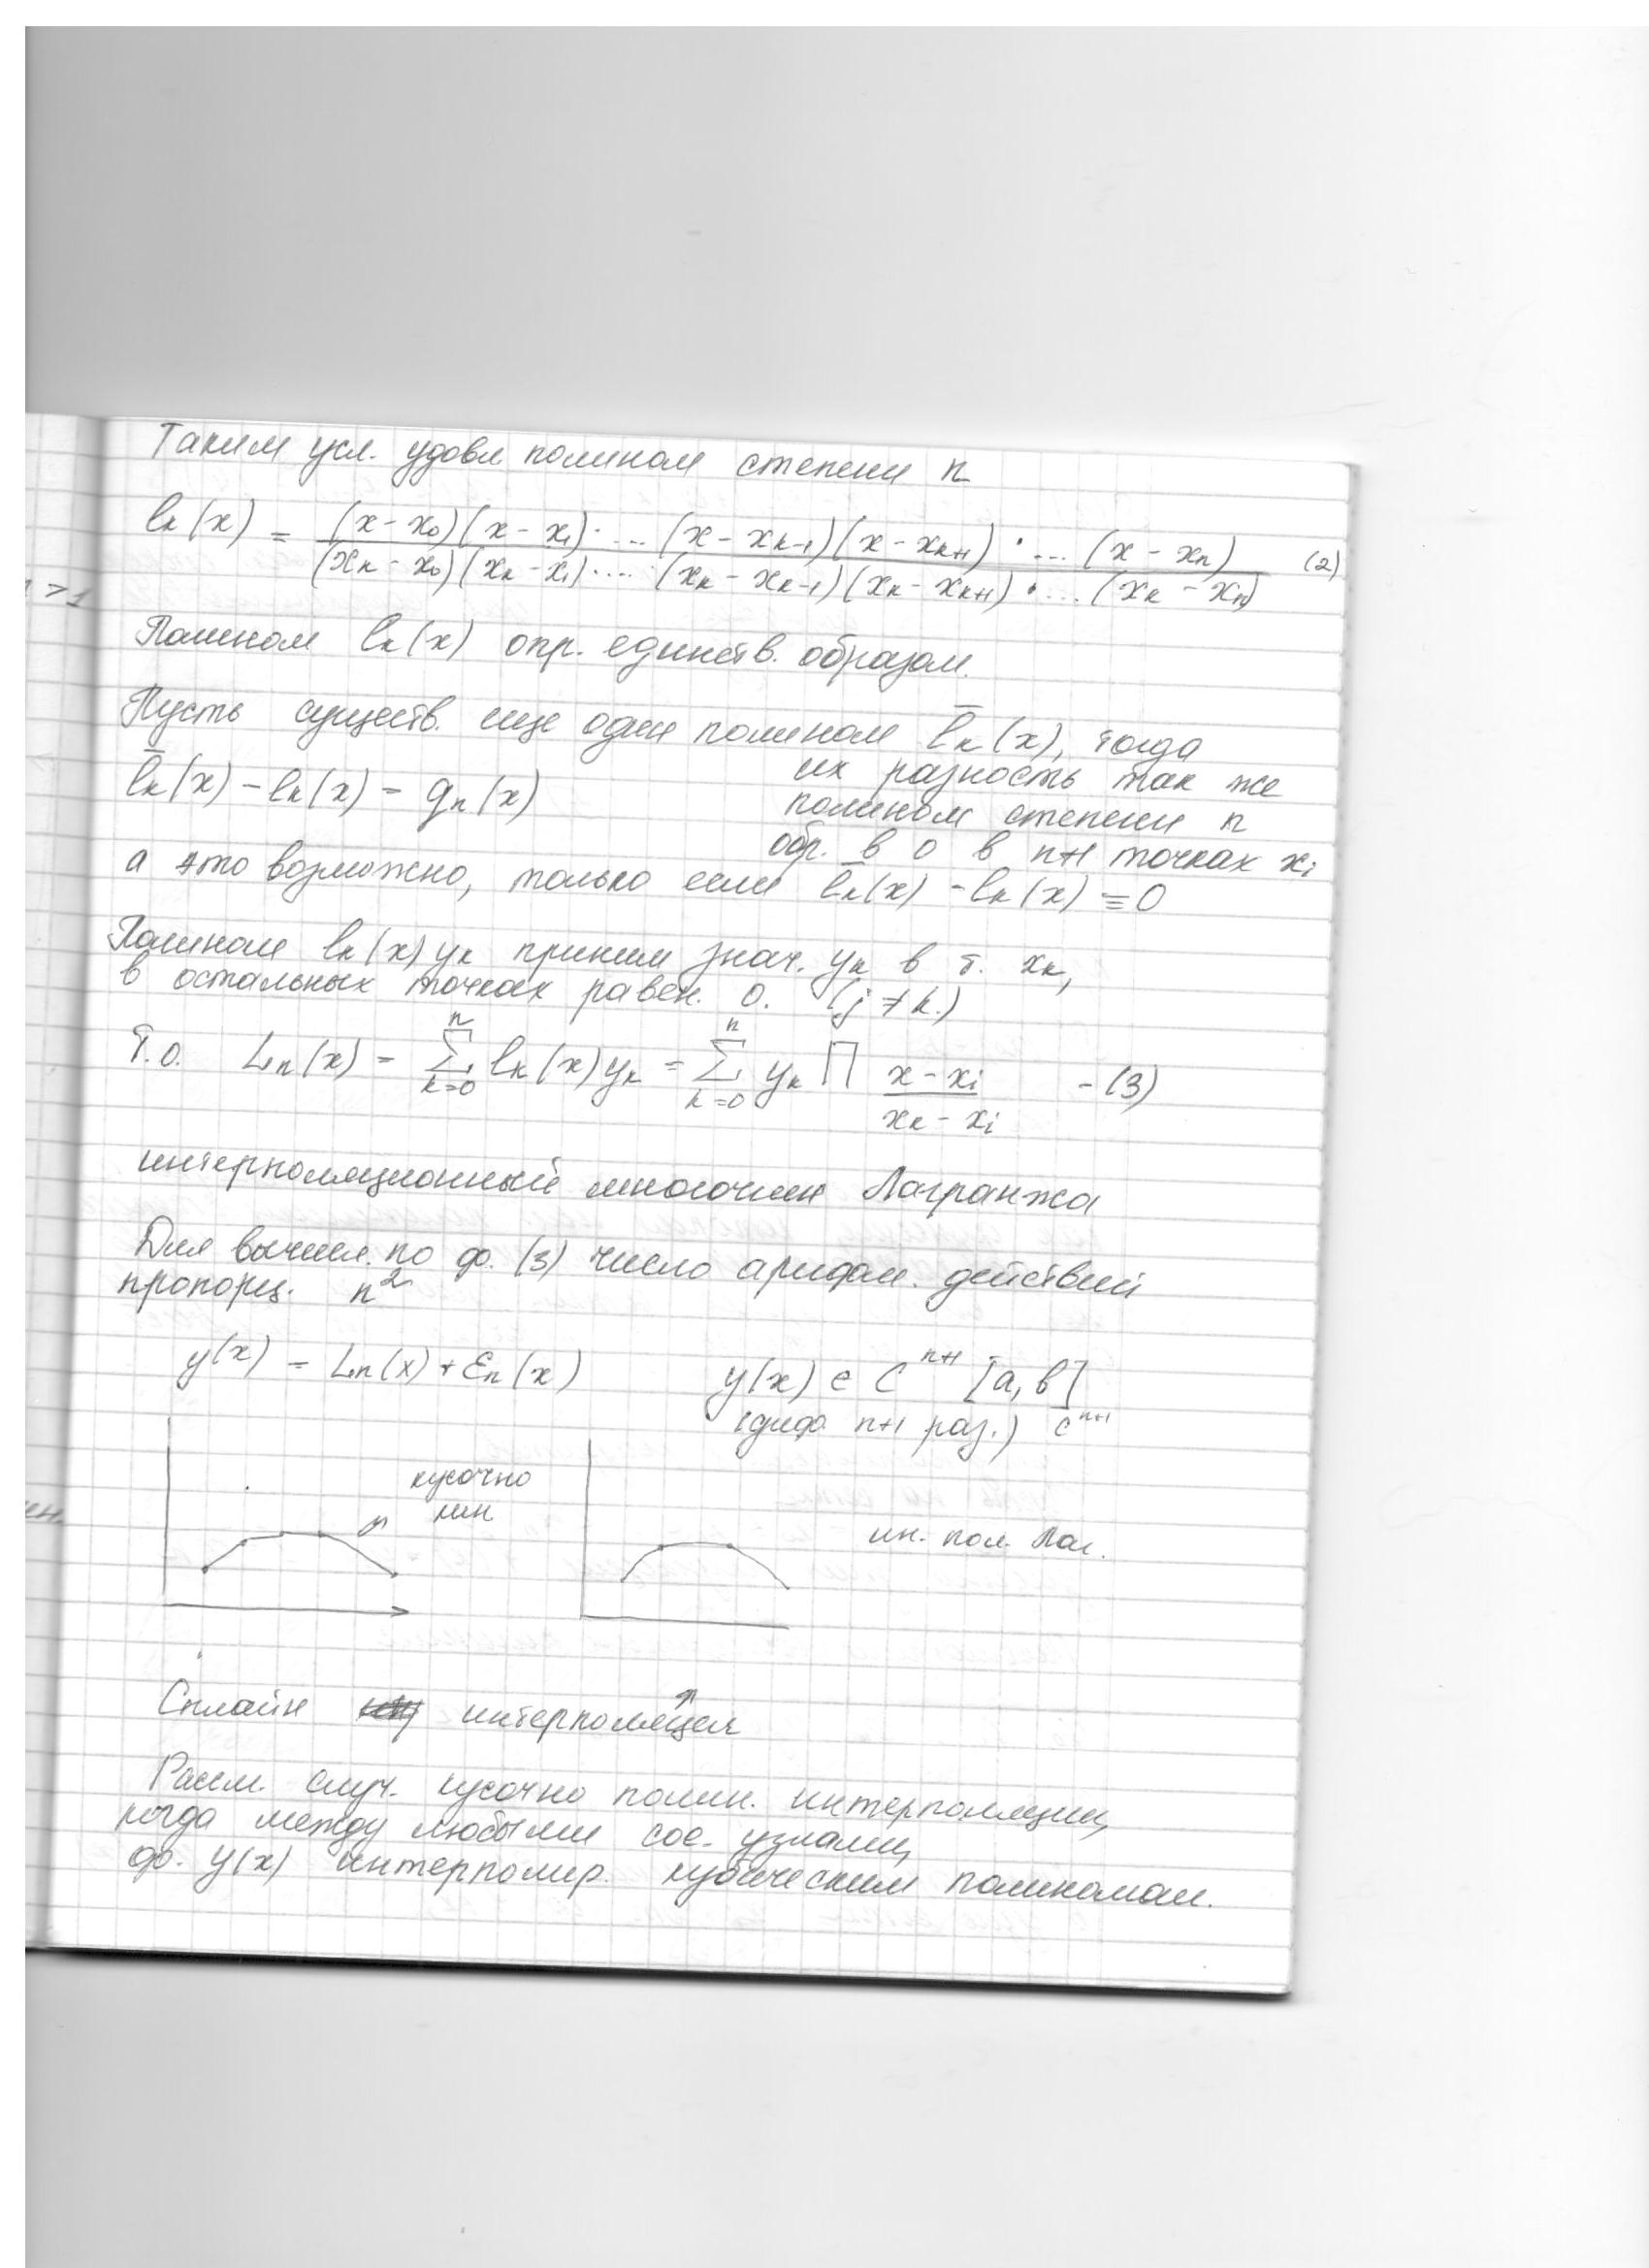 Таким усл. удовл полином степени n
lₖ(x) = (x - x₀)(x - x₁)· ... (x - xₖ₋₁)(x - xₖ₊₁) · ... (x - xₙ) / (xₖ - x₀)(xₖ - x₁)· ... ·(xₖ - xₖ₋₁)(xₖ - xₖ₊₁) · ... (xₖ - xₙ) (2)
>1
Полином lₖ(x) опр. единств. образом.
Пусть существ. еще один полином l̄ₖ(x), тогда
их разность так же
l̄ₖ(x) - lₖ(x) = qₙ(x)
полином степени n
обр. в 0 в n+1 точках xᵢ
а это возможно, только если l̄ₖ(x) - lₖ(x) ≡ 0
Полином lₖ(x) yₖ приним знач. yₖ в т. xₖ,
в остальных точках равен. 0. (j ≠ k.)
Т.о. Lₙ(x) = ∑ₖ₌₀ⁿ lₖ(x) yₖ = ∑ₖ₌₀ⁿ yₖ ∏ (x - xᵢ)/(xₖ - xᵢ) - (3)
интерполяционный многочлен Лагранжа
Для вычисл. по ф. (3) число арифм. действий
пропорц. n²
y(x) = Lₙ(x) + Ɛₙ(x) y(x) ∈ Cⁿ⁺¹ [a, b]
(диф. n+1 раз.) cⁿ⁺¹
кусочно
лин
ин. пол. Лаг.
Сплайн интерполяция
Рассм. случ. кусочно полин. интерполяции,
когда между любыми сос. узлами,
ф. y(x) интерполир. кубическим полиномам.